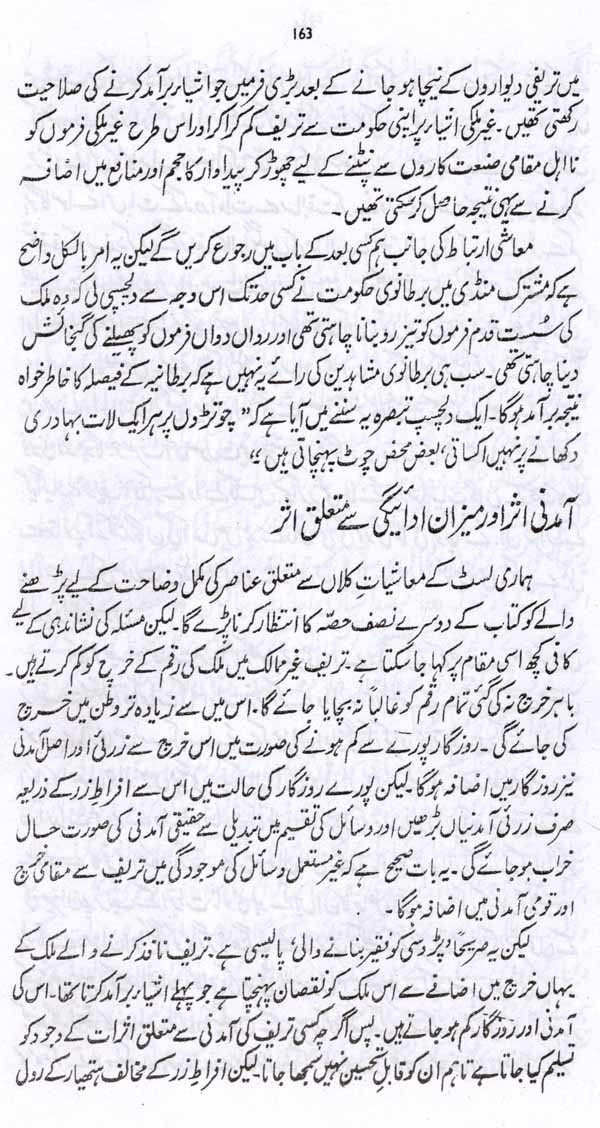 163
میں تریفی دیواروں کے نیچا ہو جانے کے بعد بڑی فرمیں جو اشیاء برآمد کرنے کی صلاحیت
رکھتی تھیں۔ غیر ملکی اشیاء پر اپنی حکومت سے تریف کم کرا کر اور اس طرح غیر ملکی فرموں کو
نا اہل مقامی صنعت کاروں سے نپٹنے کے لیے چھوڑ کر پیداوار کا حجم اور منافع میں اضافہ
کرنے سے یہی نتیجہ حاصل کرسکتی تھیں۔
معاشی ارتباط کی جانب ہم کسی بعد کے باب میں رجوع کریں گے لیکن یہ امر بالکل واضح
ہے کہ مشترک منڈی میں برطانوی حکومت نے کسی حد تک اس وجہ سے دلچسپی لی کہ وہ ملک
کی سُست قدم فرموں کو تیز رو بنانا چاہتی تھی اور رواں دواں فرموں کو پھیلنے کی گنجائش
دینا چاہتی تھی۔ سب ہی برطانوی مشاہدین کی رائے یہ نہیں ہے کہ برطانیہ کے فیصلہ کا خاطر خواہ
نتیجہ برآمد ہوگا۔ ایک دلچسپ تبصرہ یہ سننے میں آیا ہے کہ ”چوتڑوں پر ہر ایک لات بہادری
دکھانے پر نہیں اکساتی، بعض محض چوٹ پہنچاتی ہیں“
آمدنی اثر اور میزان ادائیگی سے متعلق اثر
ہماری لسٹ کے معاشیات کلاں سے متعلق عناصر کی مکمل وضاحت کے لیے پڑھنے
والے کو کتاب کے دوسرے نصف حصّہ کا انتظار کرنا پڑے گا۔ لیکن مسئلہ کی نشاندہی کے لیے
کافی کچھ اسی مقام پر کہا جا سکتا ہے۔ تریف غیر ممالک میں ملک کی رقم کے خرچ کو کم کرتے ہیں۔
باہر خرچ نہ کی گئی تمام رقم کو غالباً نہ بچایا جائے گا۔ اس میں سے زیادہ تر وطن میں خرچ
کی جائے گی۔ روزگار پورے سے کم ہونے کی صورت میں اس خرچ سے زرئی اور اصل آمدنی
نیز روزگار میں اضافہ ہوگا۔ لیکن پورے روزگار کی حالت میں اس سے افراطِ زر کے ذریعہ
صرف زرئی آمدنیاں بڑھیں اور وسائل کی تقسیم میں تبدیلی سے حقیقی آمدنی کی صورت حال
خراب ہو جائے گی۔ یہ بات صحیح ہے کہ غیر مستعمل وسائل کی موجودگی میں تریف سے مقامی خرچ
اور قومی آمدنی میں اضافہ ہوگا۔
لیکن یہ صریحاً ’پڑوسی کو فقیر بنانے والی‘ پالیسی ہے۔ تریف نافذ کرنے والے ملک کے
یہاں خرچ میں اضافے سے اس ملک کو نقصان پہنچتا ہے جو پہلے اشیاء برآمد کرتا تھا۔ اس کی
آمدنی اور روزگار کم ہو جاتے ہیں۔ پس اگرچہ کسی تریف کی آمدنی سے متعلق اثرات کے وجود کو
تسلیم کیا جاتا ہے تاہم ان کو قابلِ تحسین نہیں سمجھا جاتا۔ لیکن افراطِ زر کے مخالف ہتھیار کے رول